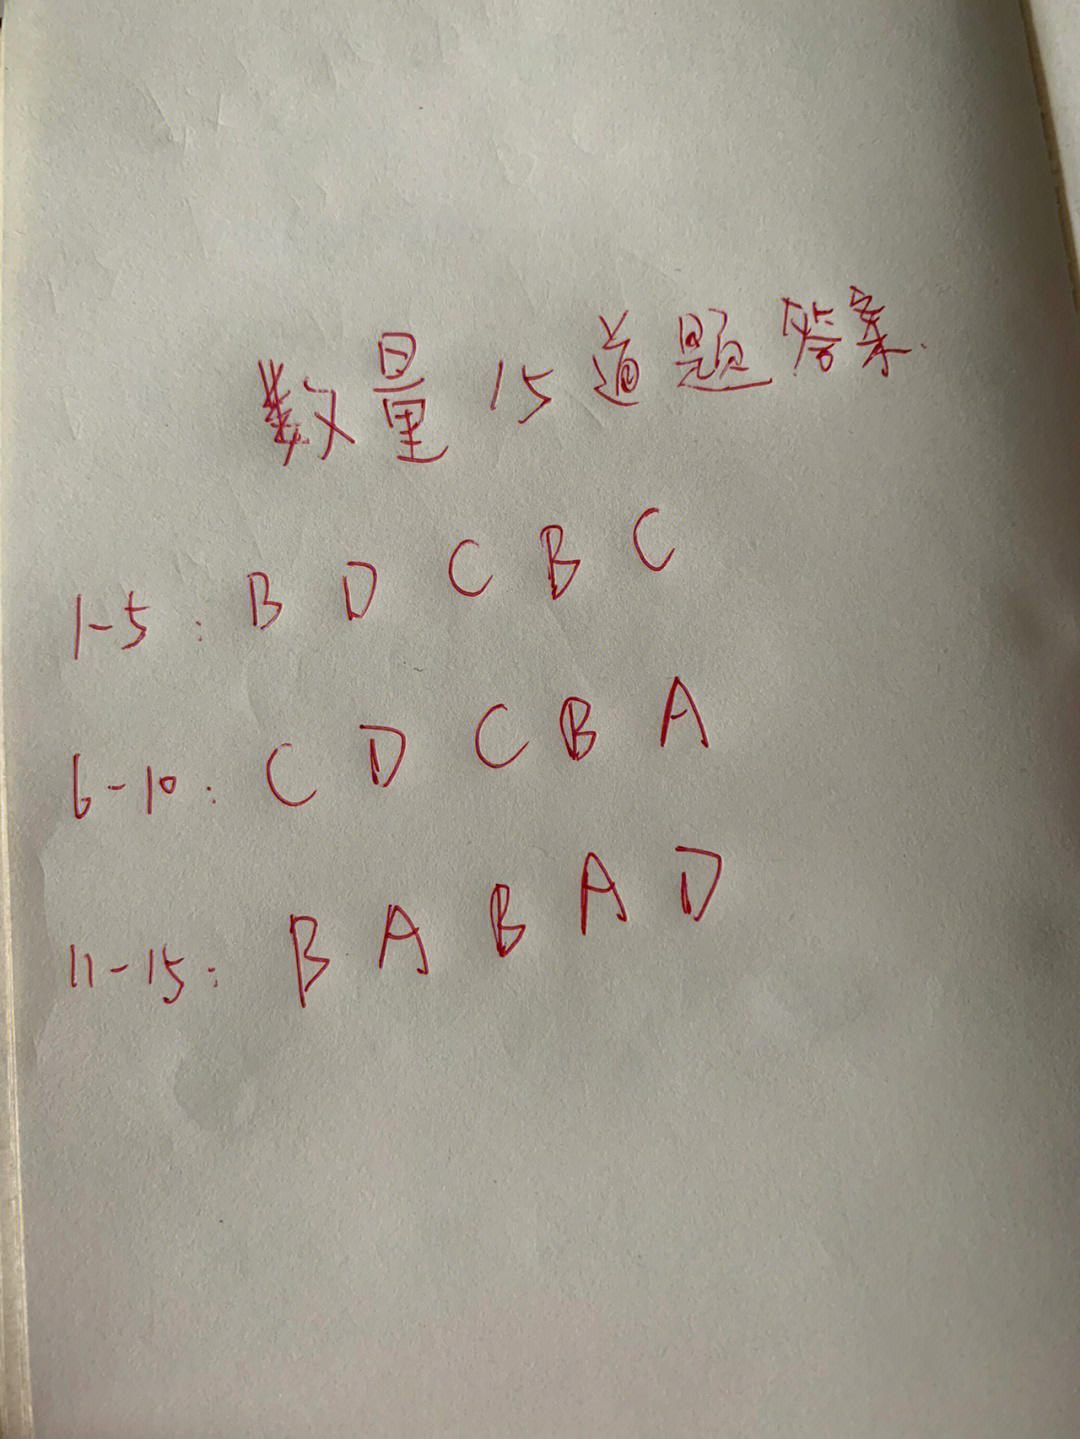 数量15道题答案.
1-5: B D C B C
6-10: C D C B A
11-15: B A B A D